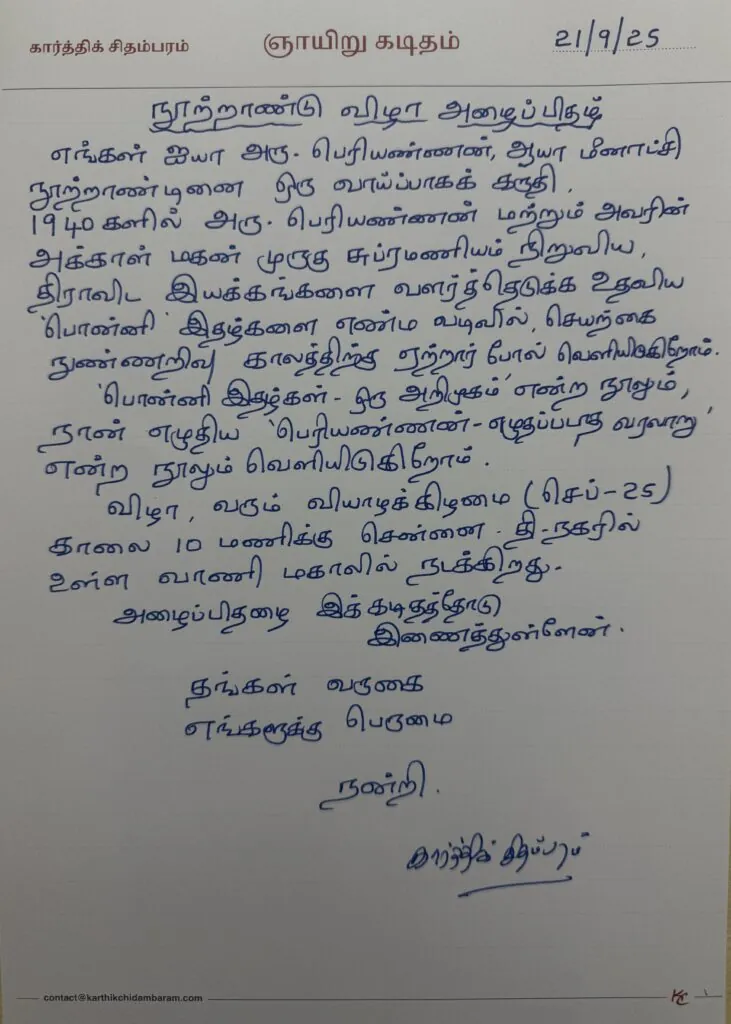 கார்த்திக் சிதம்பரம்
ஞாயிறு கடிதம்
21/9/25
நூற்றாண்டு விழா அழைப்பிதழ்
எங்கள் ஐயா அரு. பெரியண்ணன், ஆயா மீனாட்சி
நூற்றாண்டினை ஒரு வாய்ப்பாகக் கருதி,
1940 களில் அரு. பெரியண்ணன் மற்றும் அவரின்
அக்காள் மகன் முருகு சுப்ரமணியம் நிறுவிய,
திராவிட இயக்கங்களை வளர்த்தெடுக்க உதவிய
'பொன்னி' இதழ்களை எண்ம வடிவில், செயற்கை
நுண்ணறிவு காலத்திற்கு ஏற்றார் போல் வெளியிடுகிறோம்.
'பொன்னி இதழ்கள் - ஒரு அறிமுகம்' என்ற நூலும்,
நான் எழுதிய 'பெரியண்ணன் - எழுதப்படாத வரலாறு'
என்ற நூலும் வெளியிடுகிறோம்.
விழா, வரும் வியாழக்கிழமை (செப் - 25)
காலை 10 மணிக்கு சென்னை. தி-நகரில்
உள்ள வாணி மகாலில் நடக்கிறது.
அழைப்பிதழை இக்கடிதத்தோடு
இணைத்துள்ளேன்.
தங்கள் வருகை
எங்களுக்கு பெருமை
நன்றி.
கார்த்திக் சிதம்பரம்
contact@karthikchidambaram.com
KC